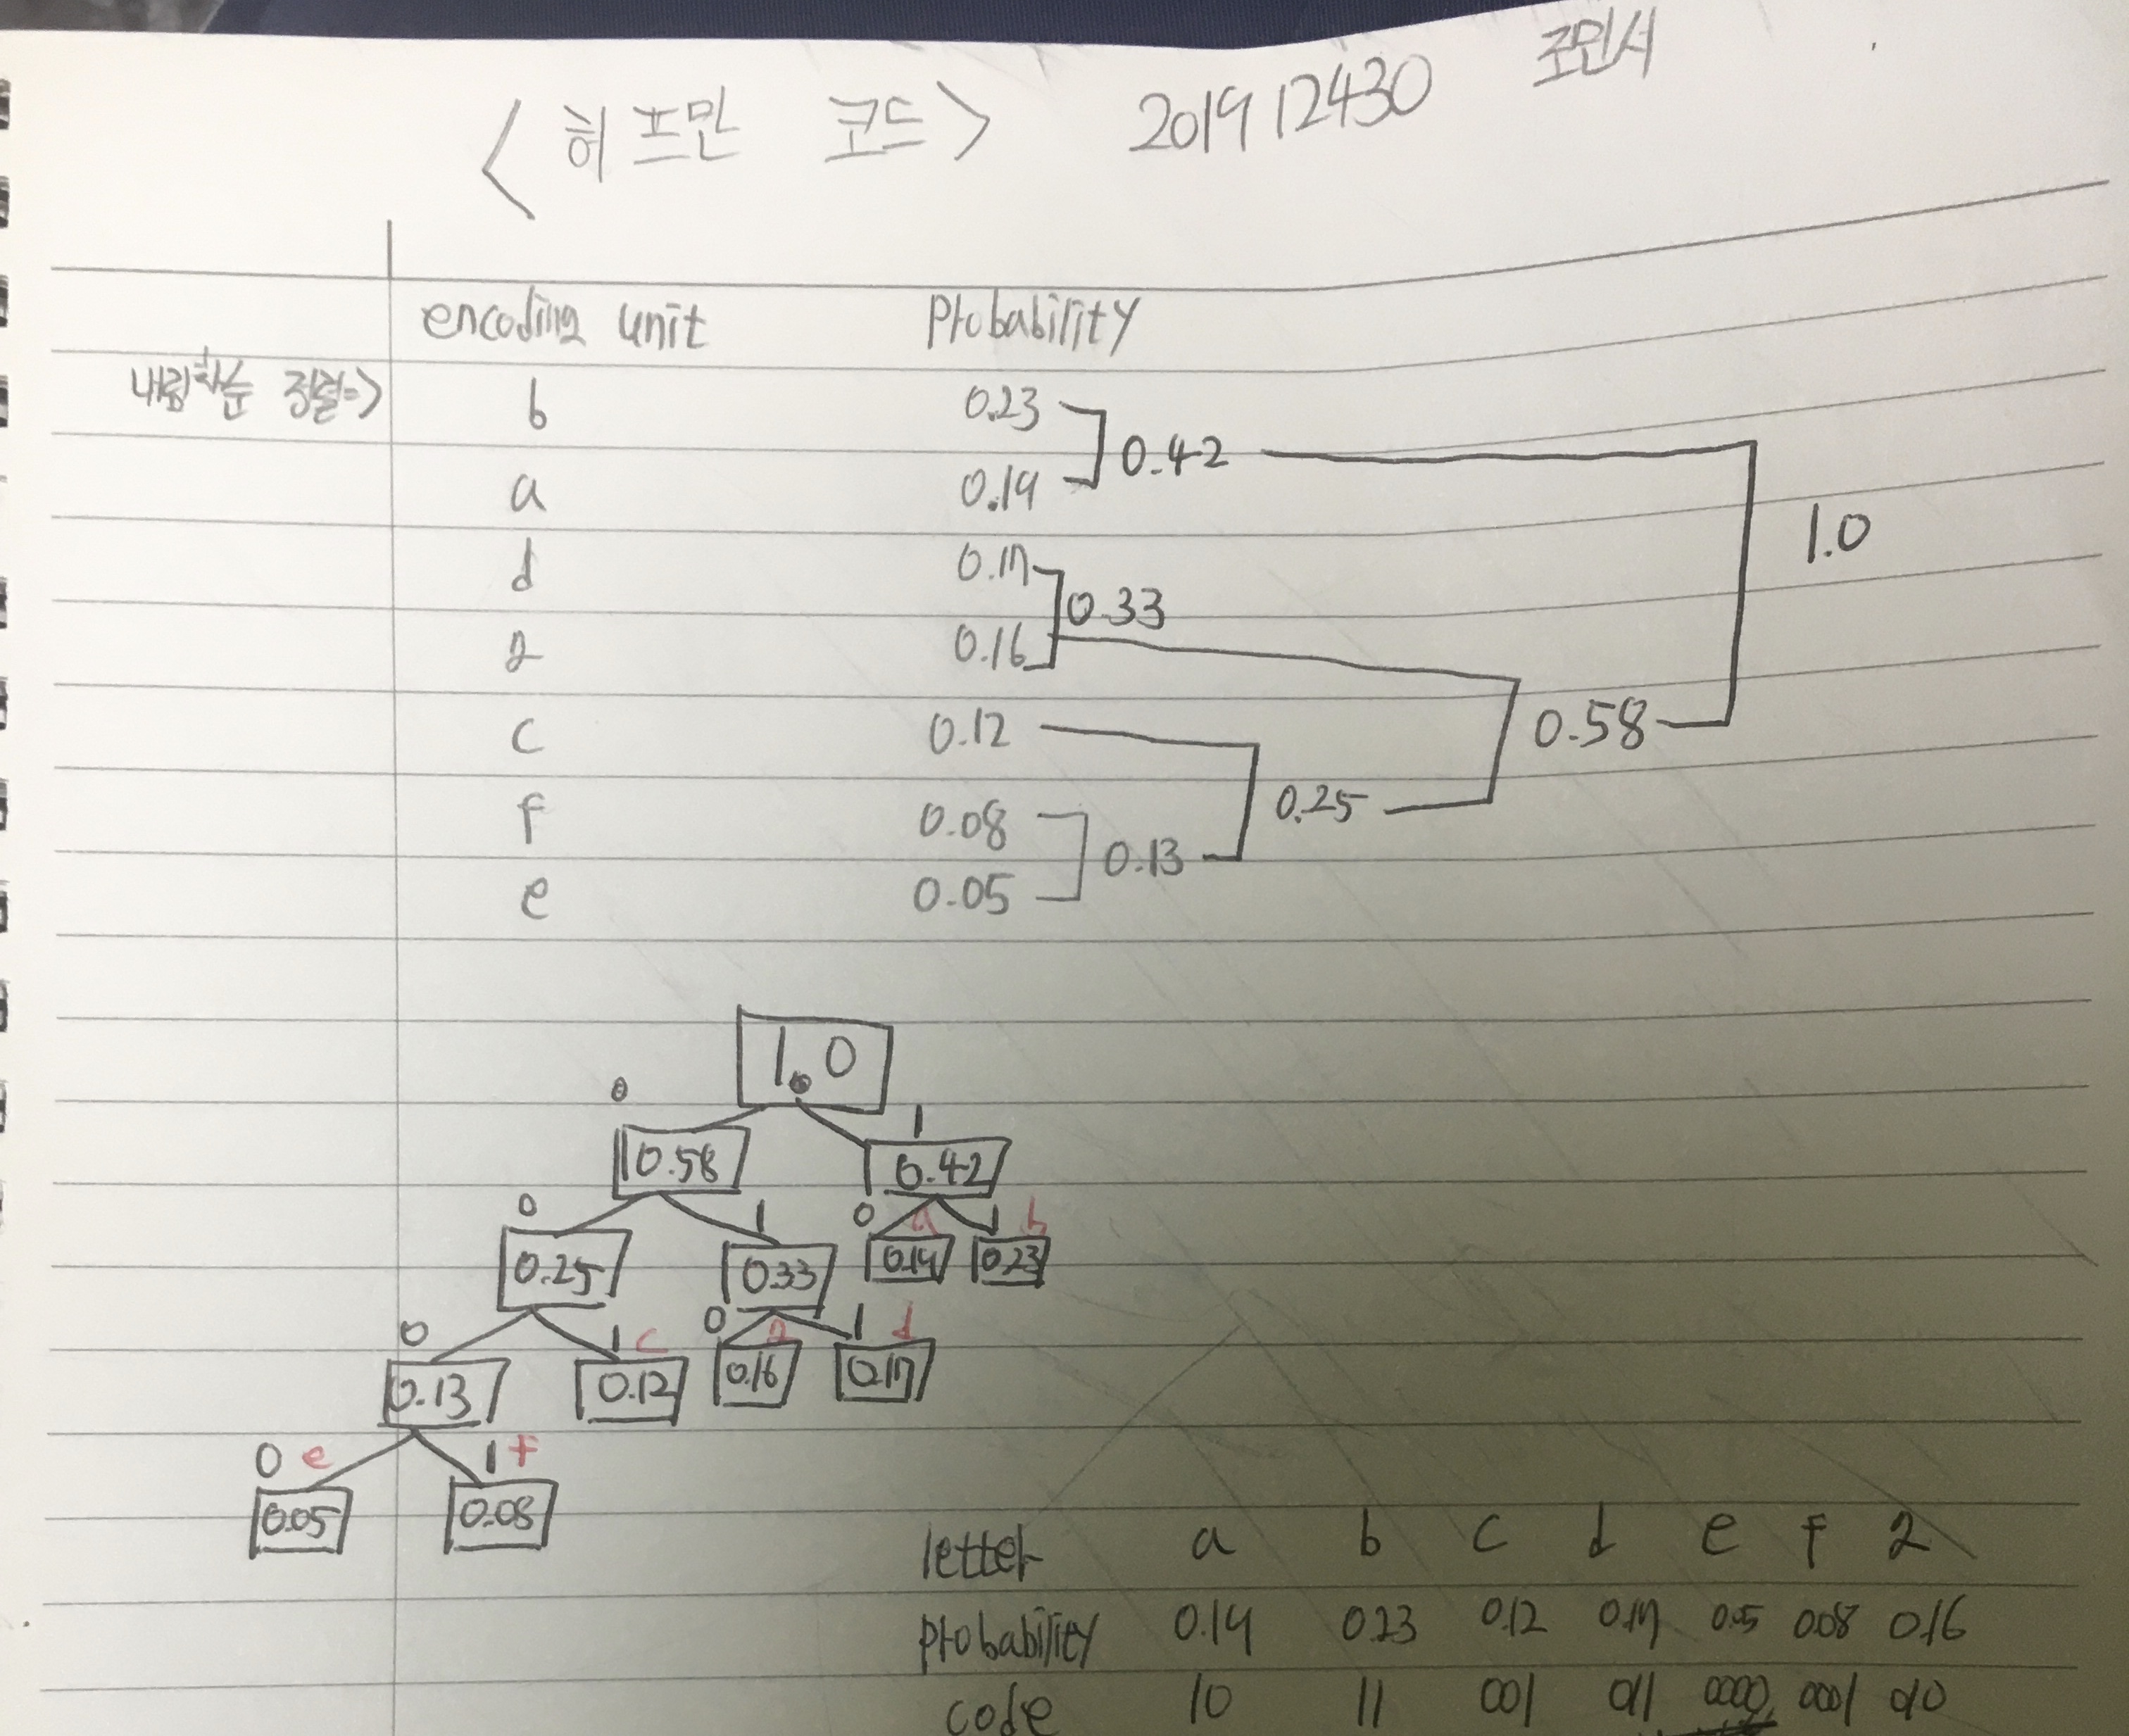 <허프만 코드> 201912430 조민서
encoding unit probability
내림차순 정렬=> b 0.23
0.42
a 0.19
1.0
d 0.17
0.33
g 0.16
c 0.12
0.58
0.25
f 0.08
0.13
e 0.05
1.0
0 1
0.58 0.42
0 1 0 a 1 b
0.25 0.33 0.19 0.23
0 1 c 0 g 1 d
0.13 0.12 0.16 0.17
0 e 1 f
0.05 0.08
letter a b c d e f g
probability 0.19 0.23 0.12 0.17 0.05 0.08 0.16
code 10 11 001 011 0000 0001 010